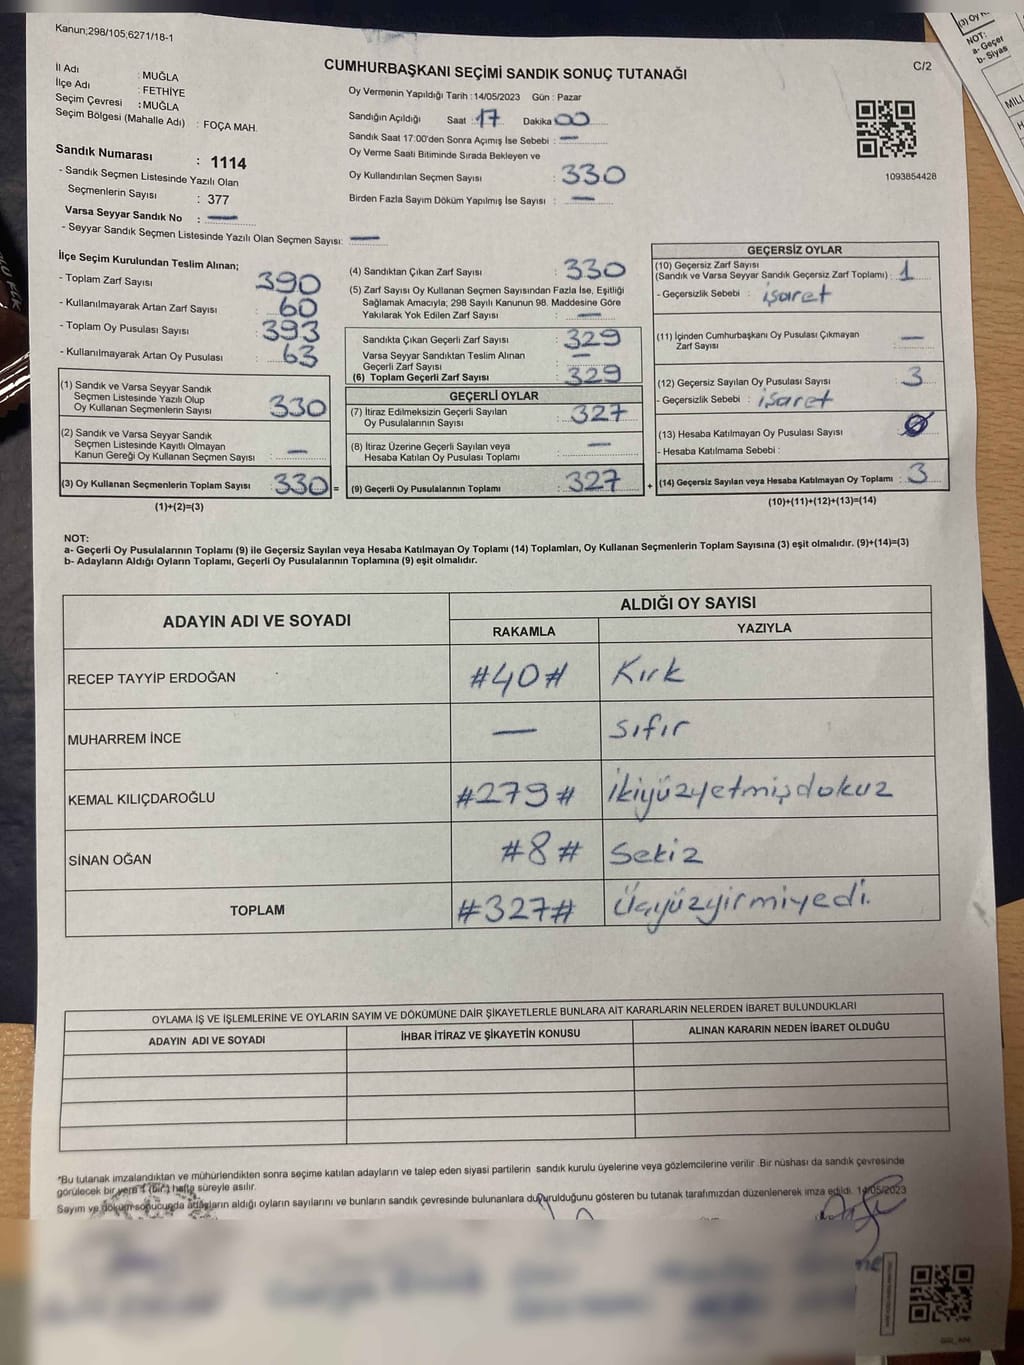 Kanun;298/105;6271/18-1
CUMHURBAŞKANI SEÇİMİ SANDIK SONUÇ TUTANAĞI
C/2
İl Adı : MUĞLA
İlçe Adı : FETHİYE
Seçim Çevresi : MUĞLA
Seçim Bölgesi (Mahalle Adı) : FOÇA MAH.
Sandık Numarası : 1114
- Sandık Seçmen Listesinde Yazılı Olan
Seçmenlerin Sayısı : 377
Varsa Seyyar Sandık No : —
- Seyyar Sandık Seçmen Listesinde Yazılı Olan Seçmen Sayısı: —
Oy Vermenin Yapıldığı Tarih : 14/05/2023 Gün : Pazar
Sandığın Açıldığı Saat : 17 Dakika 00
Sandık Saat 17:00'den Sonra Açımış İse Sebebi : —
Oy Verme Saati Bitiminde Sırada Bekleyen ve
Oy Kullandırılan Seçmen Sayısı : 330
Birden Fazla Sayım Döküm Yapılmış İse Sayısı : —
1093854428
İlçe Seçim Kurulundan Teslim Alınan;
- Toplam Zarf Sayısı : 390
- Kullanılmayarak Artan Zarf Sayısı : 60
- Toplam Oy Pusulası Sayısı : 393
- Kullanılmayarak Artan Oy Pusulası : 63
(1) Sandık ve Varsa Seyyar Sandık
Seçmen Listesinde Yazılı Olup
Oy Kullanan Seçmenlerin Sayısı : 330
(2) Sandık ve Varsa Seyyar Sandık
Seçmen Listesinde Kayıtlı Olmayan
Kanun Gereği Oy Kullanan Seçmen Sayısı : —
(3) Oy Kullanan Seçmenlerin Toplam Sayısı : 330 =
(1)+(2)=(3)
(4) Sandıktan Çıkan Zarf Sayısı : 330
(5) Zarf Sayısı Oy Kullanan Seçmen Sayısından Fazla İse, Eşitliği
Sağlamak Amacıyla; 298 Sayılı Kanunun 98. Maddesine Göre
Yakılarak Yok Edilen Zarf Sayısı : —
Sandıkta Çıkan Geçerli Zarf Sayısı : 329
Varsa Seyyar Sandıktan Teslim Alınan
Geçerli Zarf Sayısı : —
(6) Toplam Geçerli Zarf Sayısı : 329
GEÇERLİ OYLAR
(7) İtiraz Edilmeksizin Geçerli Sayılan
Oy Pusulalarının Sayısı : 327
(8) İtiraz Üzerine Geçerli Sayılan veya
Hesaba Katılan Oy Pusulası Toplamı : —
(9) Geçerli Oy Pusulalarının Toplamı : 327 +
GEÇERSİZ OYLAR
(10) Geçersiz Zarf Sayısı
(Sandık ve Varsa Seyyar Sandık Geçersiz Zarf Toplamı) : 1
- Geçersizlik Sebebi : işaret
(11) İçinden Cumhurbaşkanı Oy Pusulası Çıkmayan
Zarf Sayısı : —
(12) Geçersiz Sayılan Oy Pusulası Sayısı : 3
- Geçersizlik Sebebi : işaret
(13) Hesaba Katılmayan Oy Pusulası Sayısı : 0
- Hesaba Katılmama Sebebi :
(14) Geçersiz Sayılan veya Hesaba Katılmayan Oy Toplamı : 3
(10)+(11)+(12)+(13)=(14)
NOT:
a- Geçerli Oy Pusulalarının Toplamı (9) ile Geçersiz Sayılan veya Hesaba Katılmayan Oy Toplamı (14) Toplamları, Oy Kullanan Seçmenlerin Toplam Sayısına (3) eşit olmalıdır. (9)+(14)=(3)
b- Adayların Aldığı Oyların Toplamı, Geçerli Oy Pusulalarının Toplamına (9) eşit olmalıdır.
ADAYIN ADI VE SOYADI ALDIĞI OY SAYISI
RAKAMLA YAZIYLA
RECEP TAYYİP ERDOĞAN #40# Kırk
MUHARREM İNCE — sıfır
KEMAL KILIÇDAROĞLU #279# İkiyüzyetmişdokuz
SİNAN OĞAN #8# Sekiz
TOPLAM #327# Üçyüzyirmiyedi.
OYLAMA İŞ VE İŞLEMLERİNE VE OYLARIN SAYIM VE DÖKÜMÜNE DAİR ŞİKAYETLERLE BUNLARA AİT KARARLARIN NELERDEN İBARET BULUNDUKLARI
ADAYIN ADI VE SOYADI İHBAR İTİRAZ VE ŞİKAYETİN KONUSU ALINAN KARARIN NEDEN İBARET OLDUĞU
*Bu tutanak imzalandıktan ve mühürlendikten sonra seçime katılan adayların ve talep eden siyasi partilerin sandık kurulu üyelerine veya gözlemcilerine verilir .Bir nüshası da sandık çevresinde
görülecek bir yere 1 (bir) hafta süreyle asılır.
Sayım ve döküm sonucunda adayların aldığı oyların sayılarını ve bunların sandık çevresinde bulunanlara duyurulduğunu gösteren bu tutanak tarafımızdan düzenlenerek imza edildi. 14/05/2023
NOT:
a- Geçer
b- Siyas